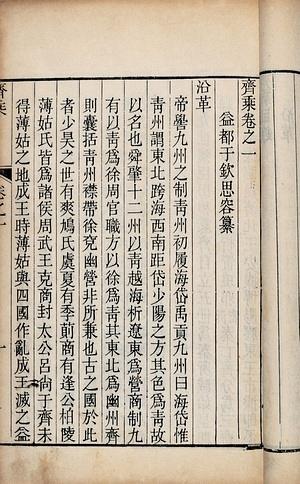 齊乘卷之一
益都于欽思容纂
沿革
帝嚳九州之制靑州初履海岱禹貢九州曰海岱惟
靑州謂東北跨海西南距岱少陽之方其色爲靑故
以名也舜肇十二州以靑越海析遼東爲營商制九
有以靑爲徐周官職方以徐爲靑其東北爲幽州齊
則囊括靑州襟帶徐兗幽營非所兼也古之國於此
者少昊之世有爽鳩氏虞夏有季萴商有逢公柏陵
薄姑氏皆爲諸侯周武王克商封太公呂尚于齊未
得薄姑之地成王時薄姑與四國作亂成王滅之益
齊乘
卷之一
一